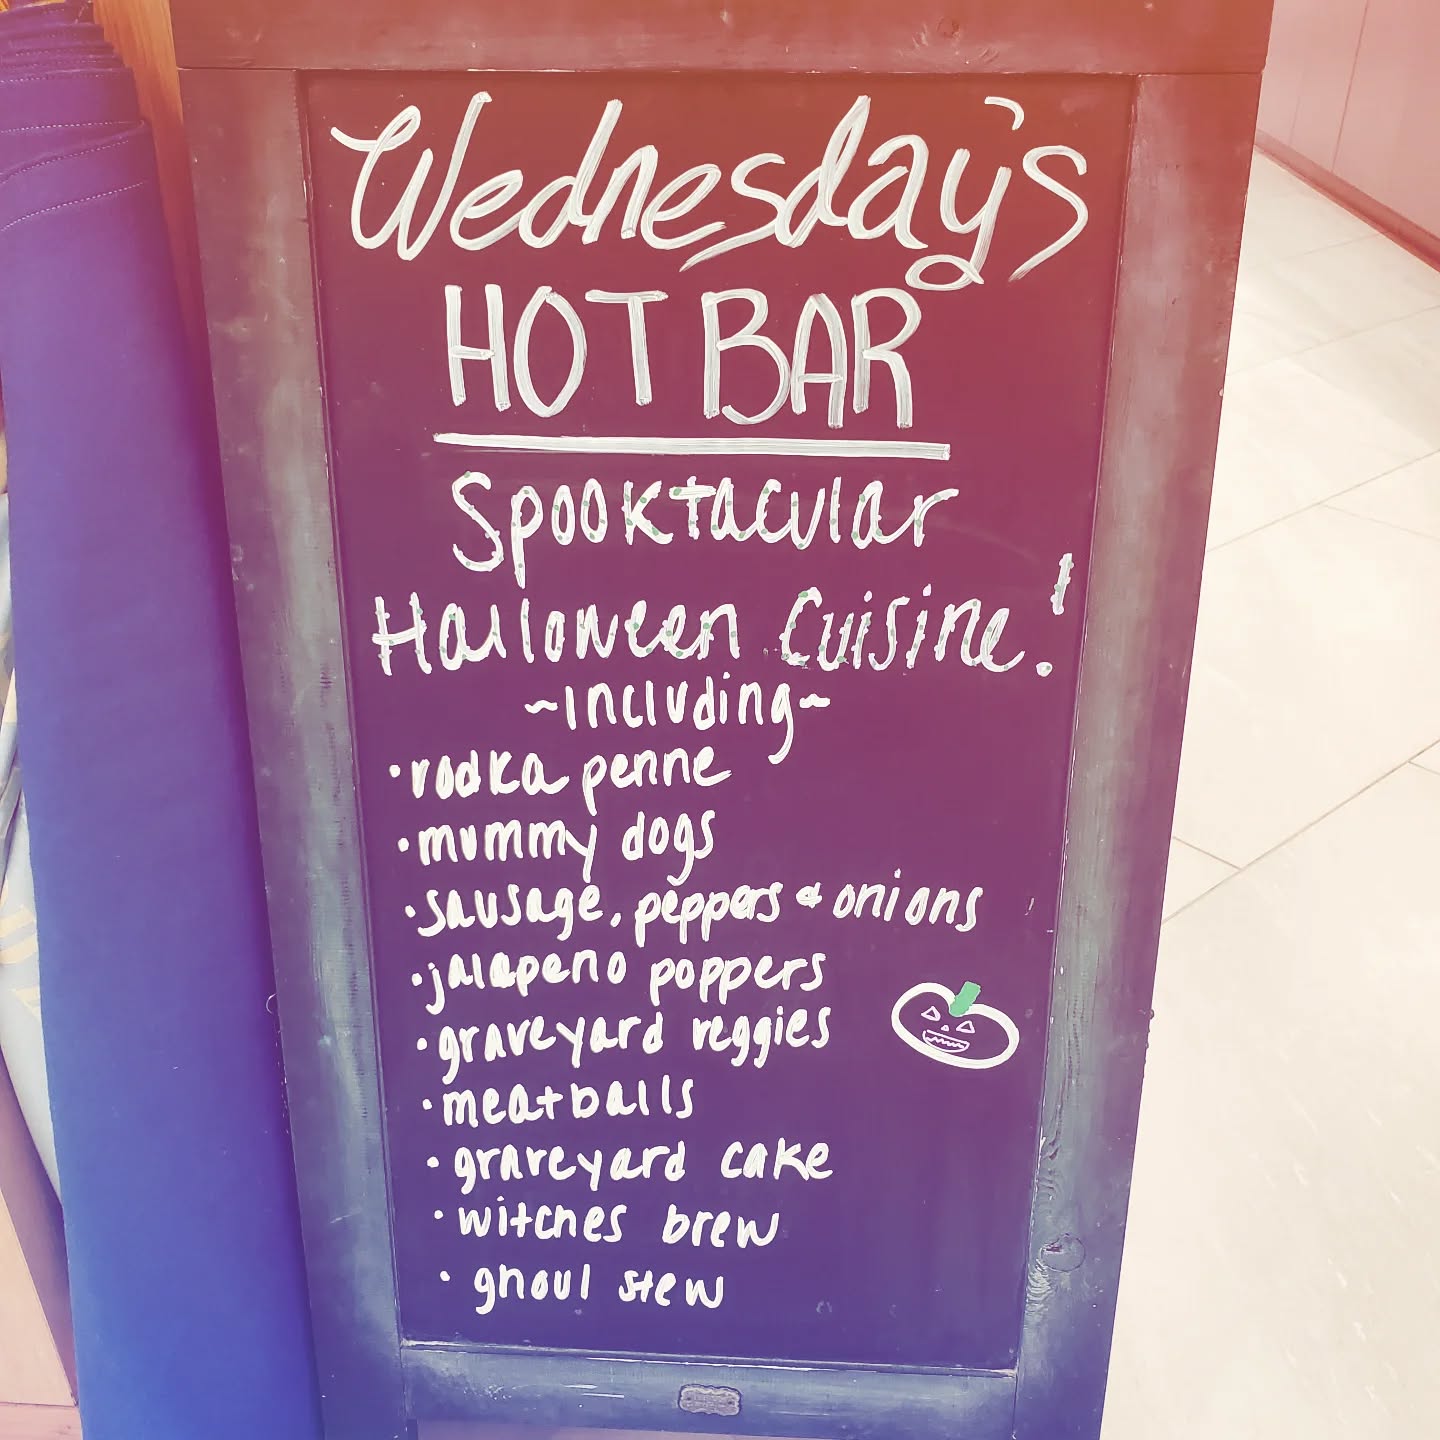 Wednesday's
HOT BAR
Spooktacular
Halloween Cuisine!
~Including~
• vodka penne
• mummy dogs
• sausage, peppers & onions
• jalapeno poppers
• graveyard veggies
• meatballs
• graveyard cake
• witches brew
• ghoul stew